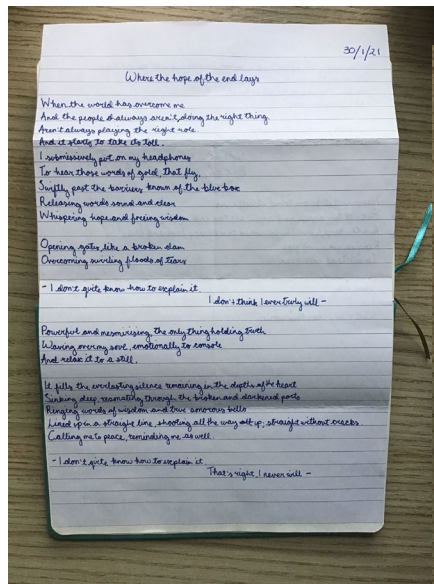 30/1/21
Where the hope of the end lays
When the world has overcome me
And the people always aren't doing the right thing.
Aren't always playing the right role.
And it starts to take its toll.
I submissively put on my headphones
To hear those words of gold, that fly,
Swiftly past the barriers known of the blue box
Releasing words sound and clear
Whispering hope and freeing wisdom
Opening gates like a broken dam
Overcoming swirling floods of tears
- I don't quite know how to explain it
I don't think I ever truly will -
Powerful and mesmerising, the only thing holding truth
Waving over my soul, emotionally to console
And relax it to a still.
It fills the everlasting silence remaining in the depths of the heart
Sinking deep, resonating through the broken and darkened parts
Ringing words of wisdom and true amorous bells
Lined up in a straight line, shooting all the way up, straight without cracks.
Calling me to peace, reminding me as well.
- I don't quite know how to explain it.
That's right, I never will -